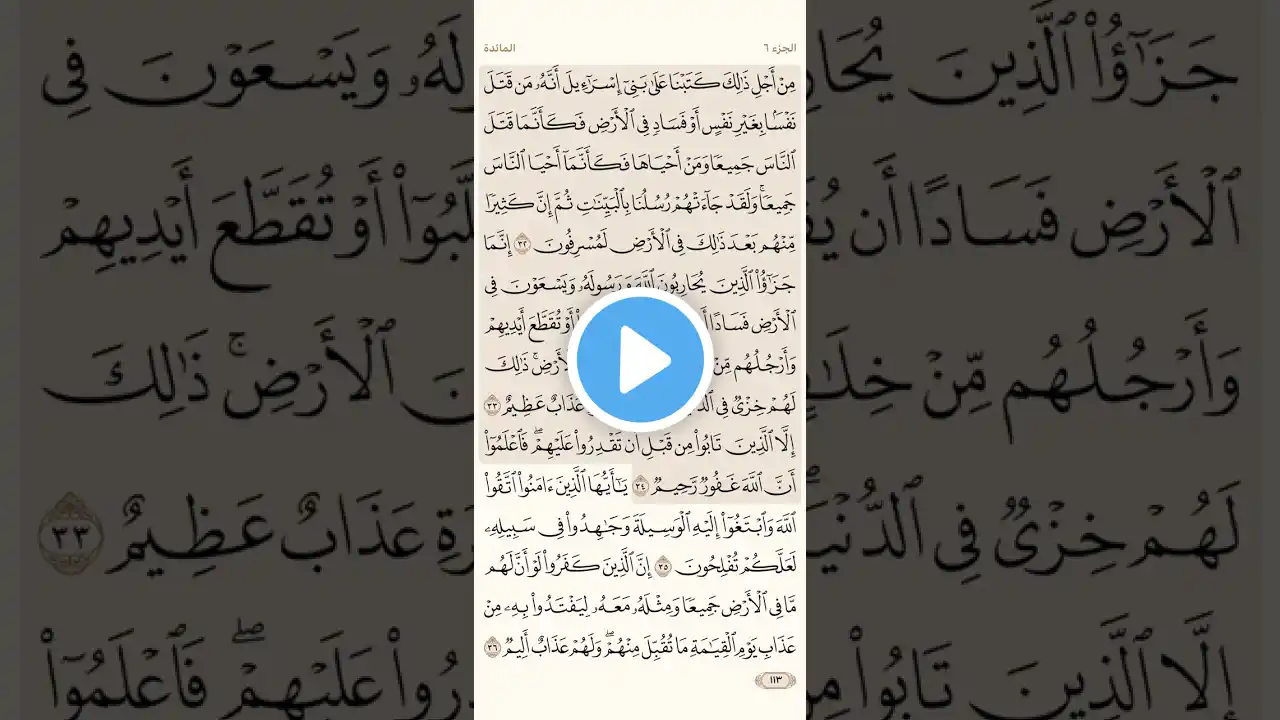 الجزء ٦ المائدة
مِنْ أَجْلِ ذَٰلِكَ كَتَبْنَا عَلَىٰ بَنِىٓ إِسْرَٰٓءِيلَ أَنَّهُۥ مَن قَتَلَ
نَفْسًۢا بِغَيْرِ نَفْسٍ أَوْ فَسَادٍ فِى ٱلْأَرْضِ فَكَأَنَّمَا قَتَلَ
ٱلنَّاسَ جَمِيعًا وَمَنْ أَحْيَاهَا فَكَأَنَّمَآ أَحْيَا ٱلنَّاسَ
جَمِيعًا ۚ وَلَقَدْ جَآءَتْهُمْ رُسُلُنَا بِٱلْبَيِّنَٰتِ ثُمَّ إِنَّ كَثِيرًا
مِّنْهُم بَعْدَ ذَٰلِكَ فِى ٱلْأَرْضِ لَمُسْرِفُونَ ٣٢ إِنَّمَا
جَزَٰٓؤُا۟ ٱلَّذِينَ يُحَارِبُونَ ٱللَّهَ وَرَسُولَهُۥ وَيَسْعَوْنَ فِى
ٱلْأَرْضِ فَسَادًا أَوْ تُقَطَّعَ أَيْدِيهِمْ
وَأَرْجُلُهُم مِّنْ ٱلْأَرْضِ ۚ ذَٰلِكَ
لَهُمْ خِزْىٌ فِى عَذَابٌ عَظِيمٌ ٣٣
إِلَّا ٱلَّذِينَ تَابُوا۟ مِن قَبْلِ أَن تَقْدِرُوا۟ عَلَيْهِمْ ۖ فَٱعْلَمُوٓا۟
أَنَّ ٱللَّهَ غَفُورٌ رَّحِيمٌ ٣٤ يَٰٓأَيُّهَا ٱلَّذِينَ ءَامَنُوا۟ ٱتَّقُوا۟
ٱللَّهَ وَٱبْتَغُوٓا۟ إِلَيْهِ ٱلْوَسِيلَةَ وَجَٰهِدُوا۟ فِى سَبِيلِهِۦ
لَعَلَّكُمْ تُفْلِحُونَ ٣٥ إِنَّ ٱلَّذِينَ كَفَرُوا۟ لَوْ أَنَّ لَهُم
مَّا فِى ٱلْأَرْضِ جَمِيعًا وَمِثْلَهُۥ مَعَهُۥ لِيَفْتَدُوا۟ بِهِۦ مِنْ
عَذَابِ يَوْمِ ٱلْقِيَٰمَةِ مَا تُقُبِّلَ مِنْهُمْ ۖ وَلَهُمْ عَذَابٌ أَلِيمٌ ٣٦
١١٣